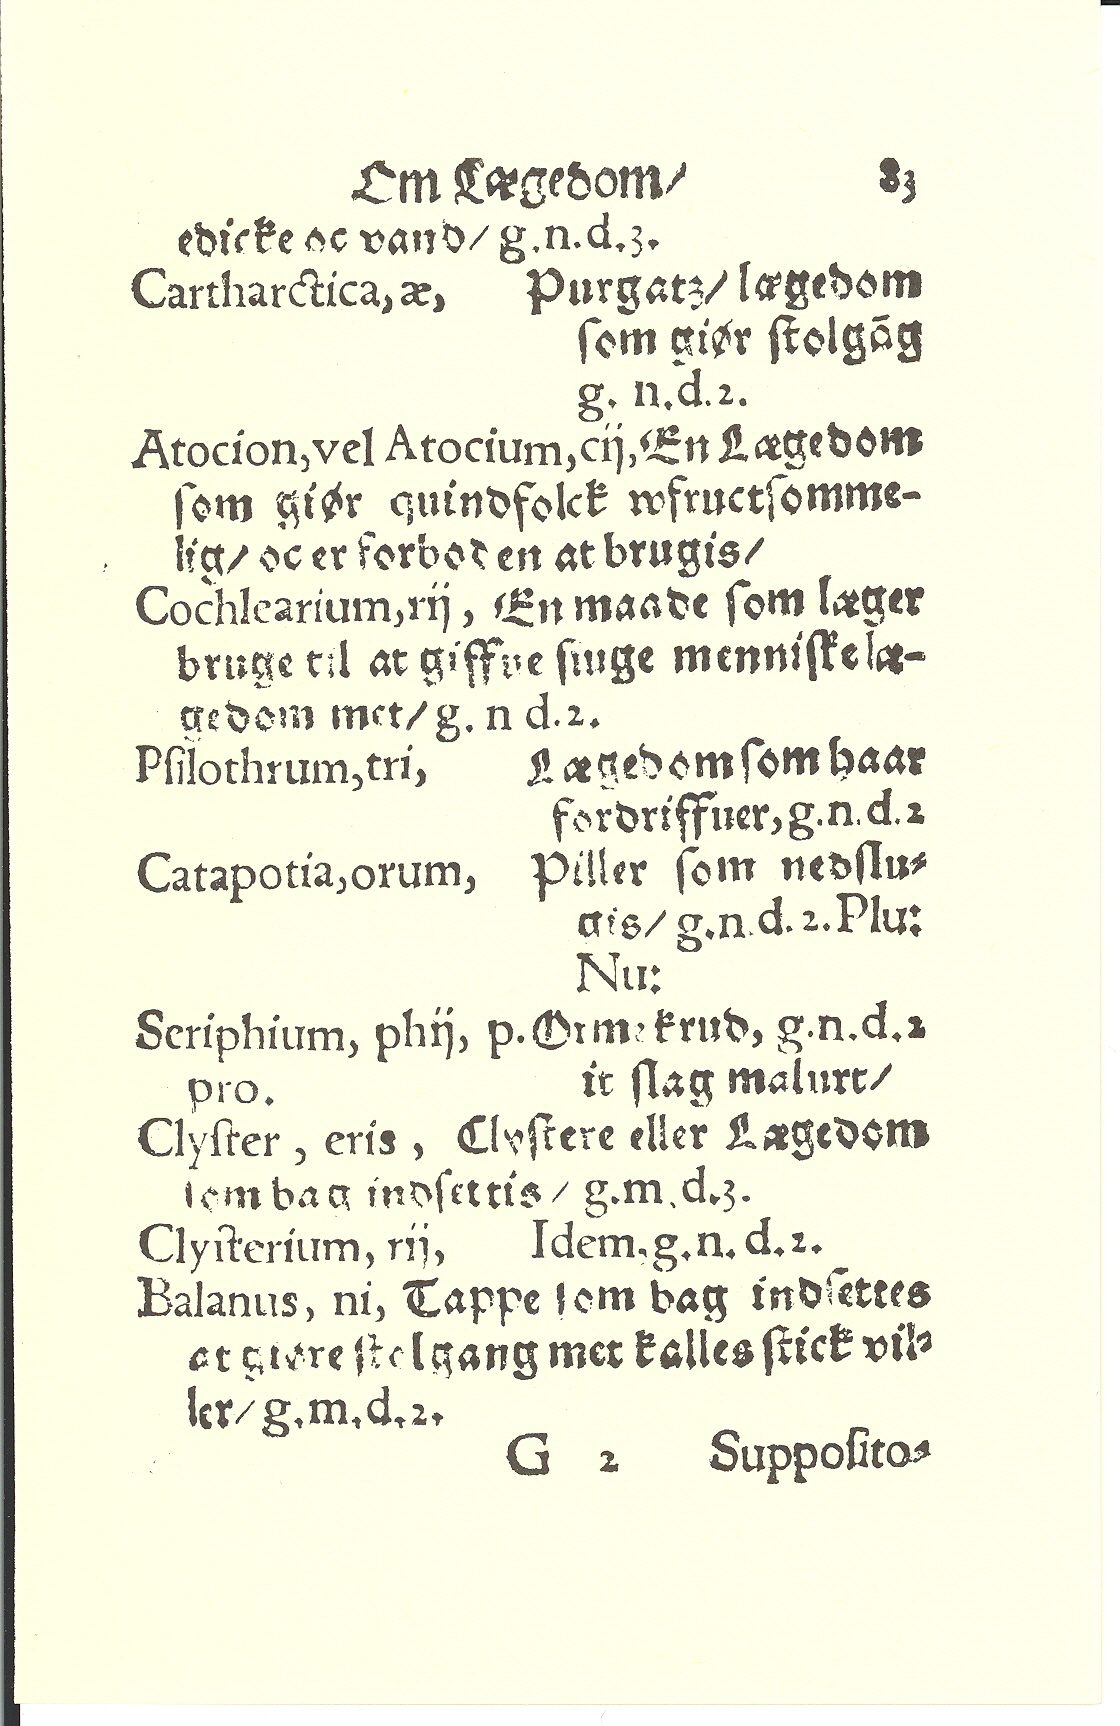 Om Lægedom/ 83
edicke oc vand/ g.n.d.3.
Cartharctica, æ, Purgatz/ lægedom
som giør stolgāg
g. n.d.2.
Atocion, vel Atocium, cij, En Lægedom
som giør quindfolck wfructsomme-
lig/ oc er forboden at brugis/
Cochlearium, rij, En maade som læger
bruge til at giffue siuge menniske læ-
gedom met/ g. n d.2.
Psilothrum, tri, Lægedom som haar
fordriffuer, g.n.d.2
Catapotia, orum, Piller som nedslu-
gis/ g.n.d.2. Plu:
Nu:
Seriphium, phij, p. Ormekrud, g.n.d.2
pro. it slag malurt/
Clyster, eris, Clystere eller Lægedom
som bag indsettis/ g.m.d.3.
Clysterium, rij, Idem, g.n.d.2.
Balanus, ni, Tappe som bag indsettes
at giøre stolgang met kalles stick pil-
ler/ g.m.d.2.
G 2 Supposito-